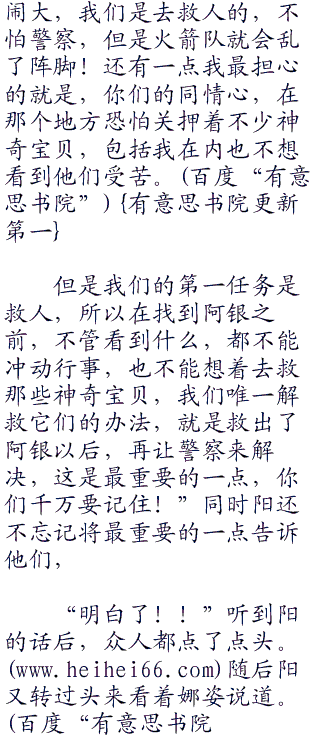 闹大，我们是去救人的，不
怕警察，但是火箭队就会乱
了阵脚！还有一点我最担心
的就是，你们的同情心，在
那个地方恐怕关押着不少神
奇宝贝，包括我在内也不想
看到他们受苦。(百度“有意
思书院”){有意思书院更新
第一}
但是我们的第一任务是
救人，所以在找到阿银之
前，不管看到什么，都不能
冲动行事，也不能想着去救
那些神奇宝贝，我们唯一解
救它们的办法，就是救出了
阿银以后，再让警察来解
决，这是最重要的一点，你
们千万要记住！”同时阳还
不忘记将最重要的一点告诉
他们，
“明白了！！”听到阳
的话后，众人都点了点头。
(www.heihei66.com)随后阳
又转过头来看着娜姿说道。
(百度“有意思书院